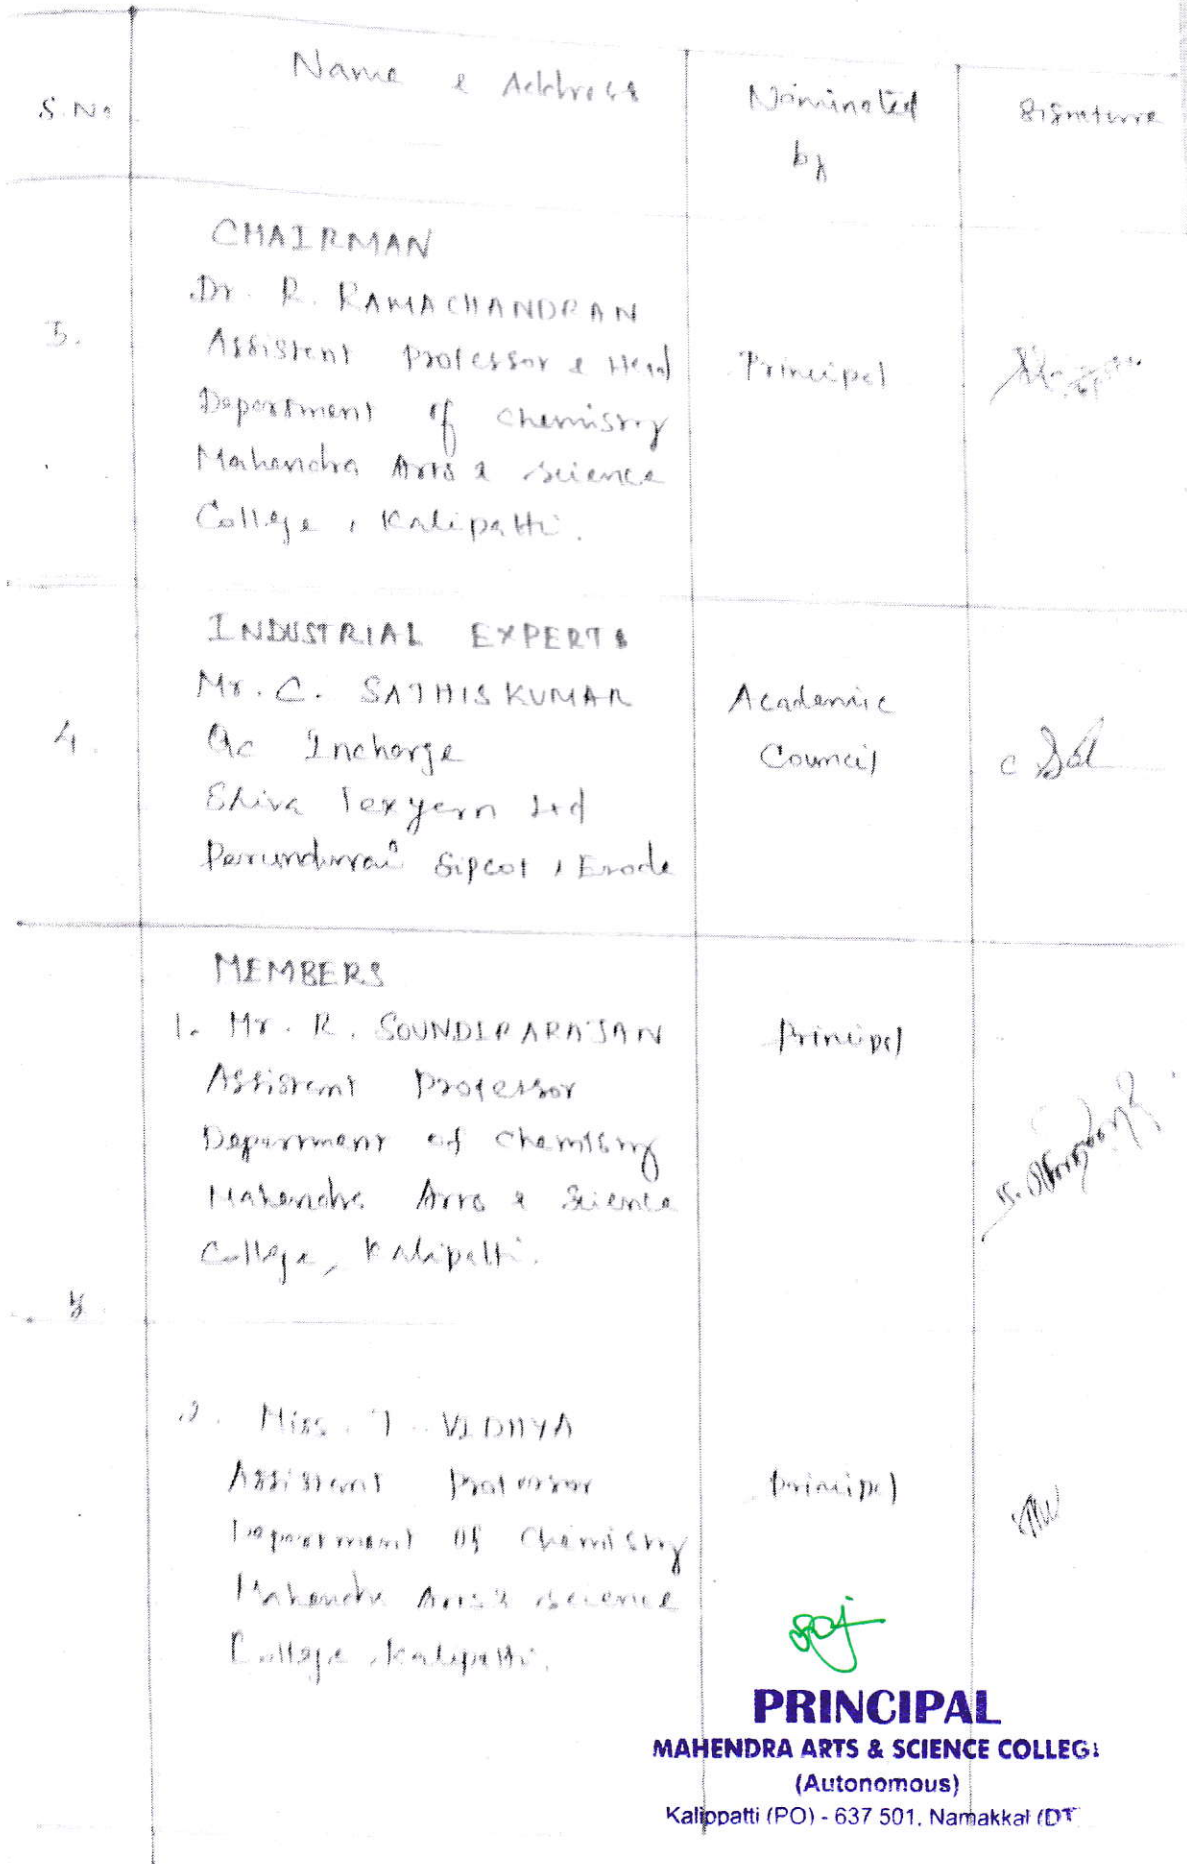 S.No Name & Address Nominated by Signature
CHAIRMAN
3. Dr. R. RAMACHANDRAN
Assistent Professor & Head Principal
Department of Chemistry
Mahendra Arts & Science
College, Kalipatti.
INDUSTRIAL EXPERTS
Mr. C. SATHISKUMAR Academic
4. Qc Incharge Council
Shiva Texyern Ltd
Perundurai Sipcot, Erode
MEMBERS
1. Mr. R. SOUNDIRARAJAN Principal
Assistent Professor
Department of Chemistry
Mahendra Arts & Science
College, Kalipatti.
2. Miss. T. VIDHYA
Assistant Professor Principal
Department of Chemistry
Mahendra Arts & Science
College, Kalipatti.
PRINCIPAL
MAHENDRA ARTS & SCIENCE COLLEGE
(Autonomous)
Kalippatti (PO) - 637 501, Namakkal (DT